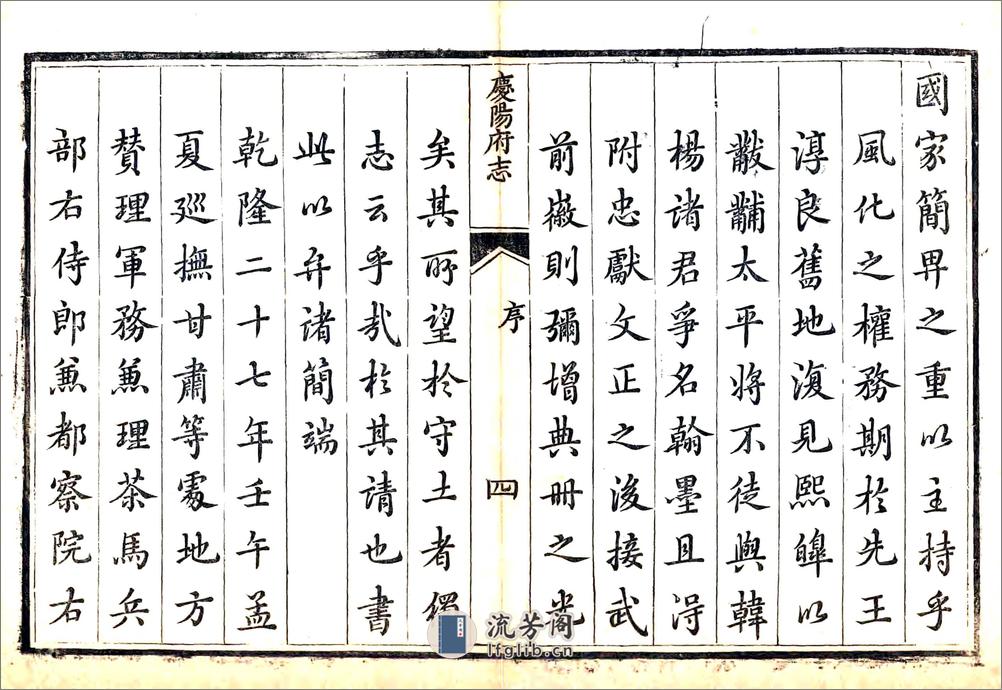 國家簡畀之重以主持乎
風化之權務期於先王
淳良舊地復見熙皥以
黻黼太平將不徒與韓
楊諸君爭名翰墨且得
附忠獻文正之後接武
前徽則彌增典冊之光
慶陽府志
序
四
矣其所望於守土者僅
志云乎哉於其請也書
此以弁諸簡端
乾隆二十七年壬午孟
夏廵撫甘肅等處地方
贊理軍務兼理茶馬兵
部右侍郎兼都察院右
流芳阁
lfglib.cn